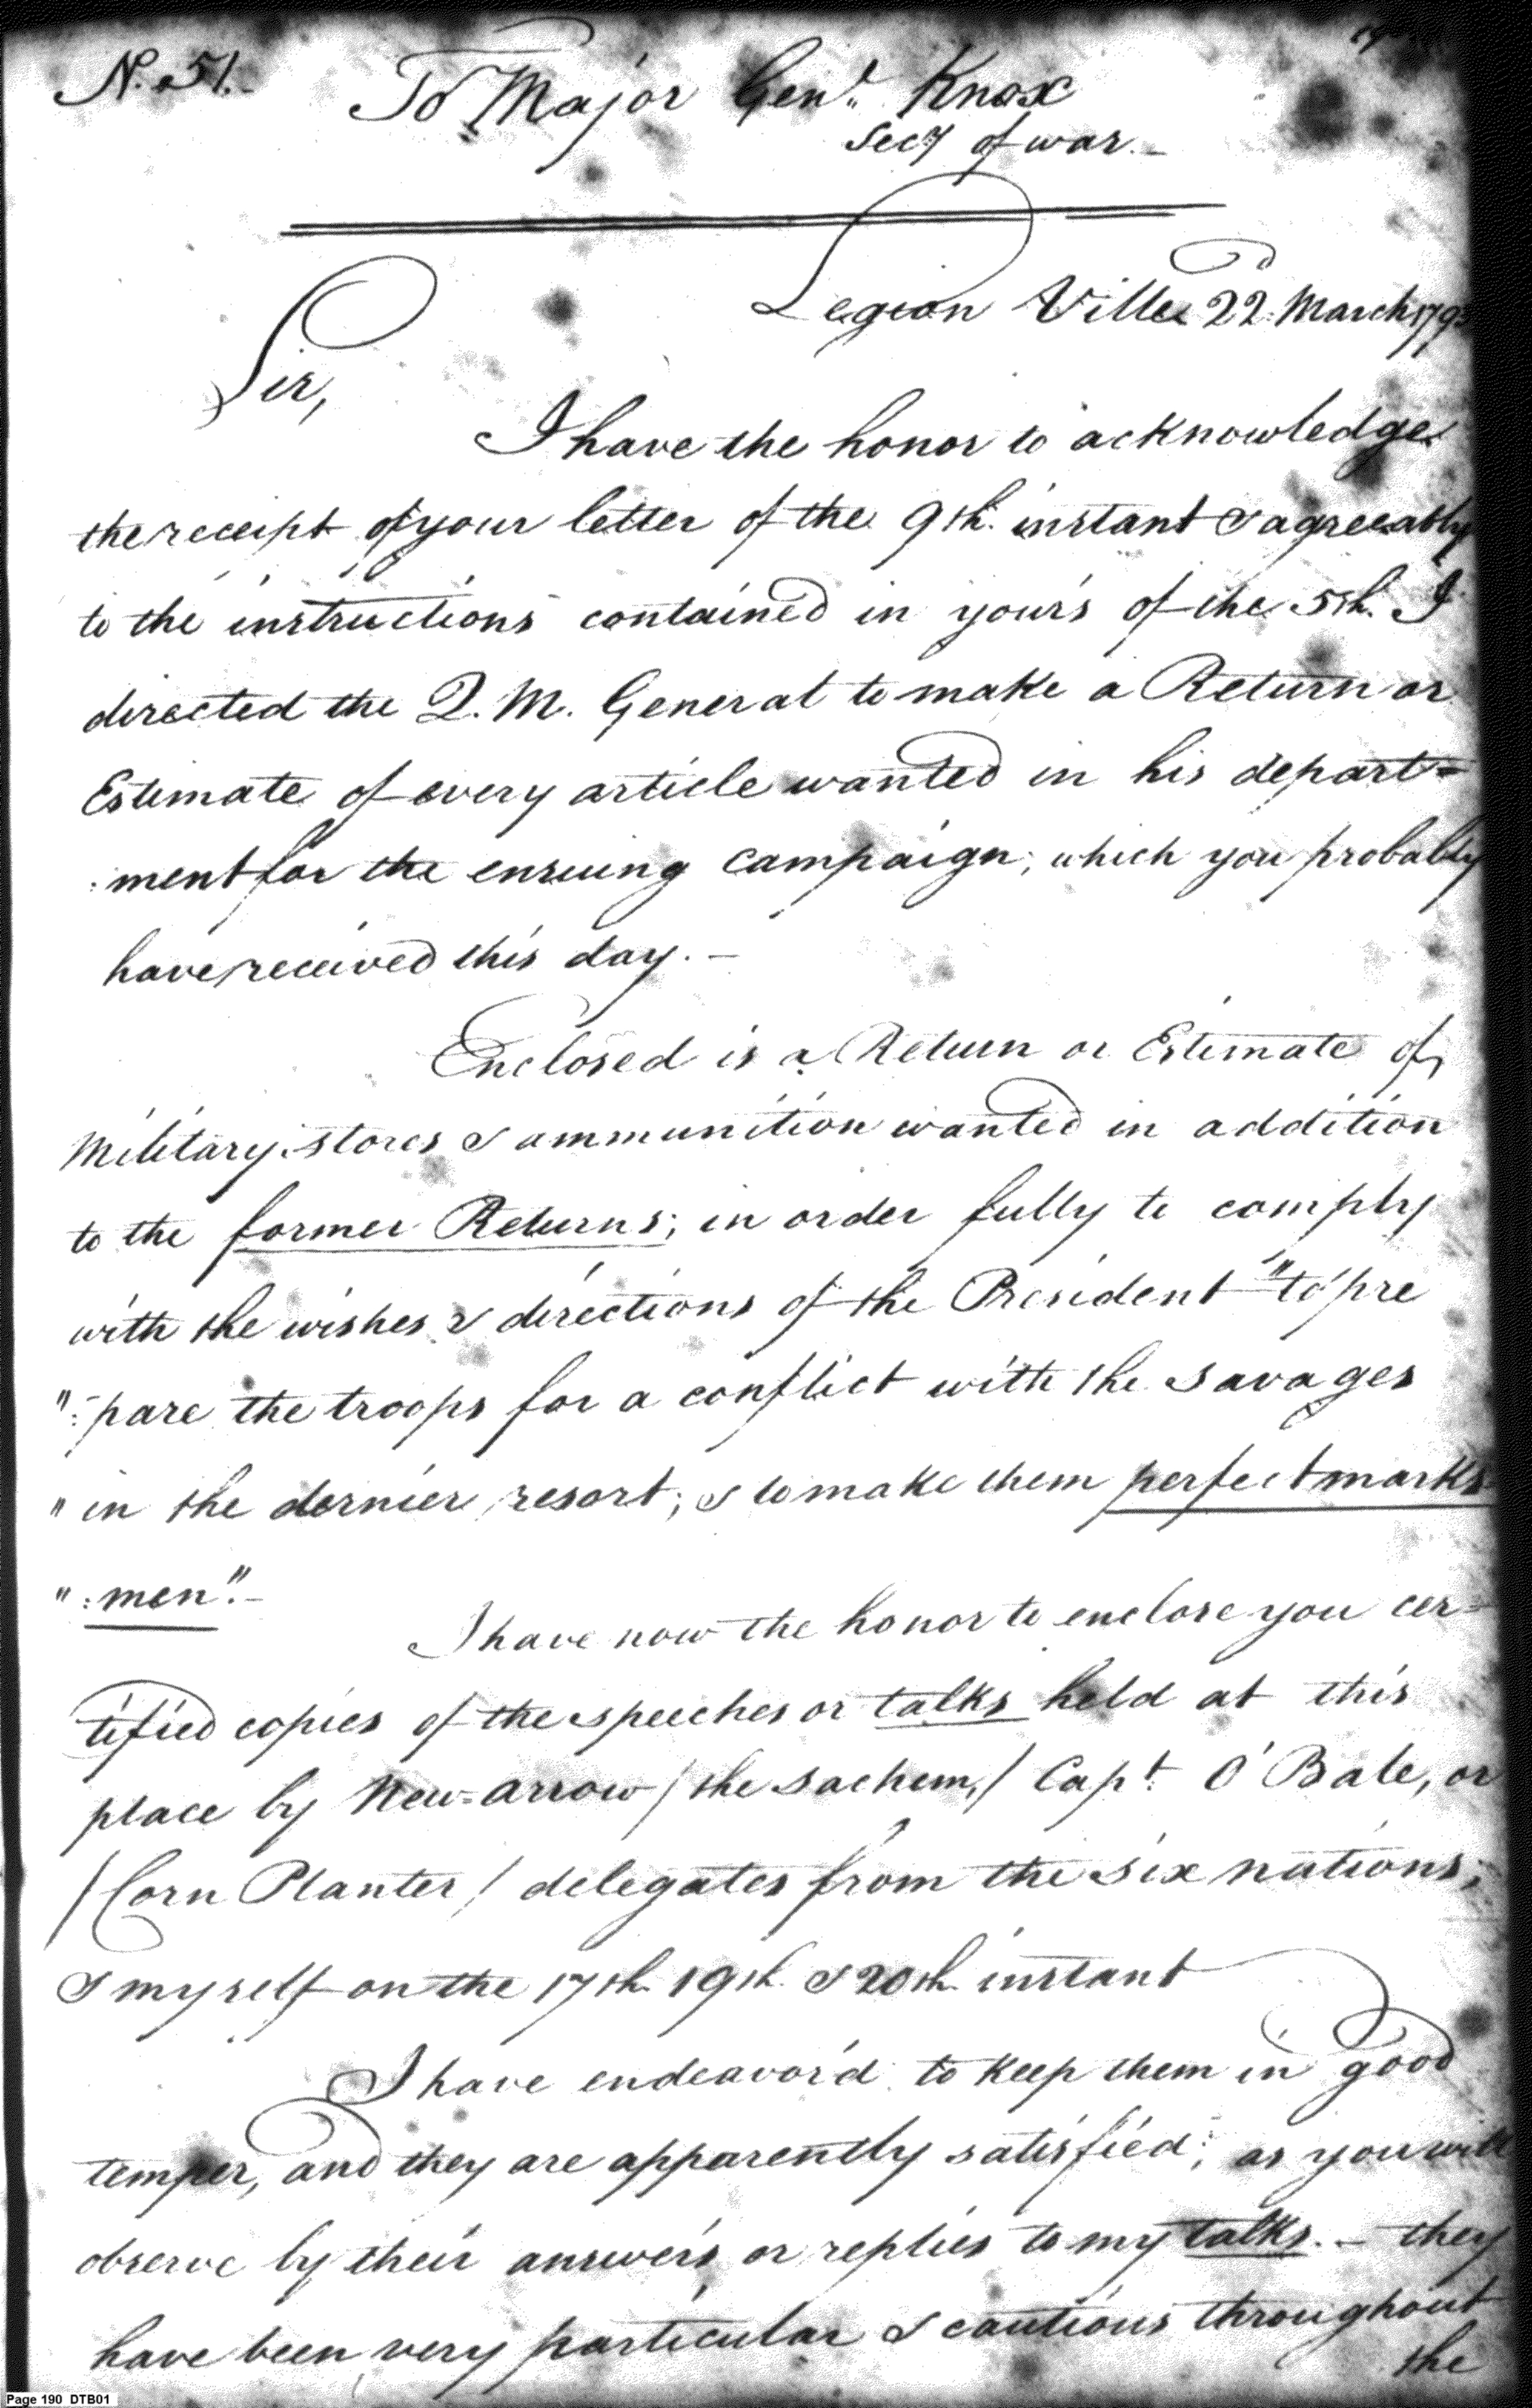 N.o 51.-
To Major Gen.l Knox
Sec'y of war.-
Legion Ville 22. March 1793
Sir,
I have the honor to acknowledge
the receipt of your letter of the 9th. instant & agreeably
to the instructions contained in your's of the 5th. I
directed the Q. M. General to make a Return or
Estimate of every article wanted in his depart=
:ment for the ensuing campaign; which you probably
have received this day. -
Enclosed is a Return or Estimate of
Military stores & ammunition wanted in addition
to the former Returns; in order fully to comply
with the wishes & directions of the President "to pre
":pare the troops for a conflict with the savages
"in the dernier resort; & to make them perfect marks
":men".-
I have now the honor to enclose you cer=
tified copies of the speeches or talks held at this
place by New=arrow / the sachem, / Capt. O'Bale, or
/ Corn Planter / delegates from the six nations,
& myself on the 17th. 19th. & 20th. instant
I have endeavor'd to keep them in good
temper, and they are apparently satisfied; as you will
observe by their answers or replies to my talks. - they
have been very particular & cautious throughout
the
Page 190 DTB01